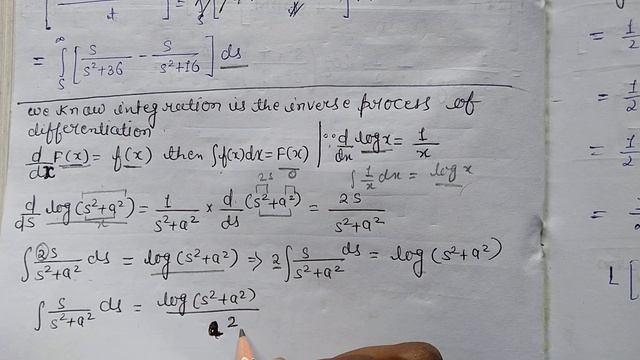 t
= ∫_s^∞ [ s/(s²+36) - s/(s²+16) ] ds
we know integration is the inverse process of
differentiation
d/dx F(x) = f(x) then ∫f(x)dx = F(x) | ∵ d/dx log x = 1/x
∫ 1/x dx = log x
2s 0
d/ds log(s²+a²) = 1/(s²+a²) × d/ds (s²+a²) = 2s/(s²+a²)
x
∫ 2s/(s²+a²) ds = log(s²+a²) ⇒ 2∫ s/(s²+a²) ds = log(s²+a²)
∫ s/(s²+a²) ds = log(s²+a²)/2
= 1/2
= 1/2
= 1/2
=
L [